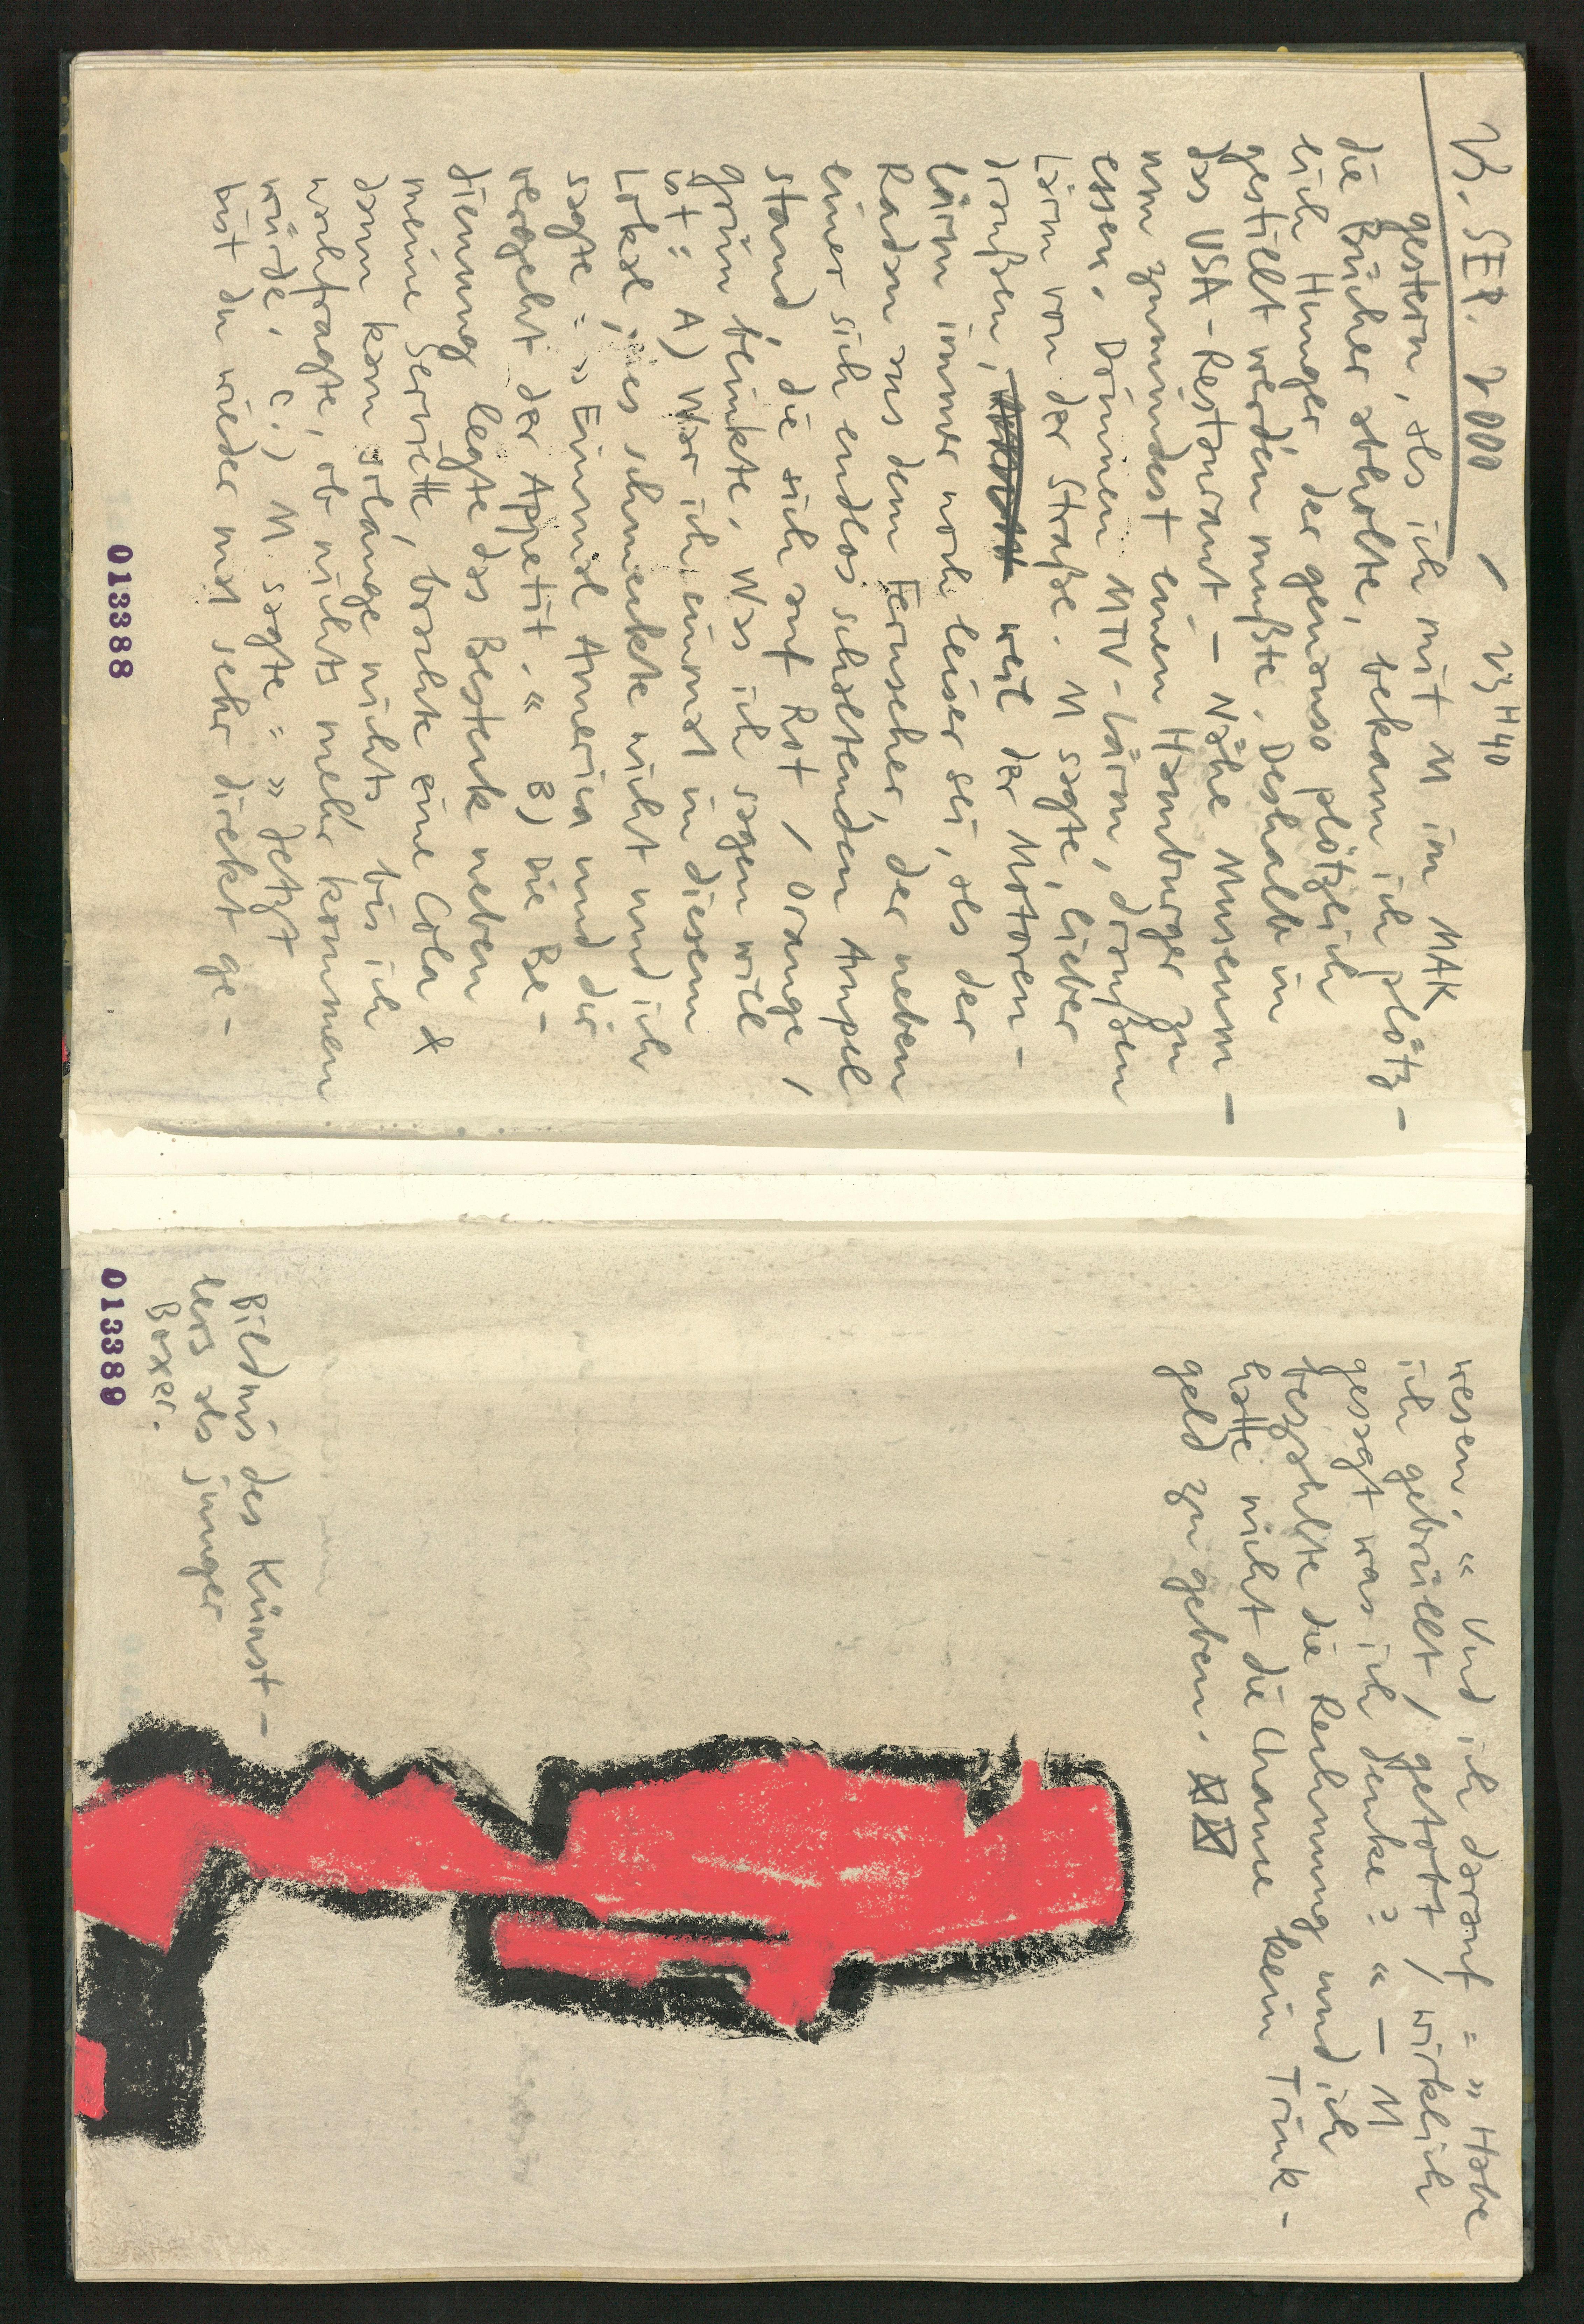 gestern, als ich mit M im MAK
die Bücher abholte, bekam ich plötz-
lich Hunger, der genauso plötzlich
gestillt werden mußte. Deshalb in
das USA-Restaurant – Nähe Museum –
um zumindest einen Hamburger zu
essen. Drinnen MTV-Lärm, draußen
Lärm von der Straße. M sagte, lieber
draußen, weil der Motoren-
lärm immer noch leiser sei, als der
Radau aus dem Fernseher, der neben
einer sich endlos schaltenden Ampel
stand, die sich auf Rot / Orange /
Grün blinkte. Was ich sagen will
ist: A) War ich einmal in diesem
Lokal, es schmeckte nicht und ich
sagte: » Einmal America und dir
vergeht der Appetit. « B) Die Be-
dienung legte das Besteck neben
meine Serviette, brachte eine Cola &
dann kam solange nichts bis ich
nachfragte, ob nichts mehr kommen
würde. C.) M sagte: » Jetzt
bist du wieder mal sehr direkt ge-
013388
wesen. « Und ich darauf: » Habe
ich gebrüllt / getobt / wirklich
gesagt was ich denke? « – M
bezahlte die Rechnung und ich
hatte nicht die Chance kein Trink-
geld zu geben.
Bildnis des Künst-
lers als junger
Boxer.
013389